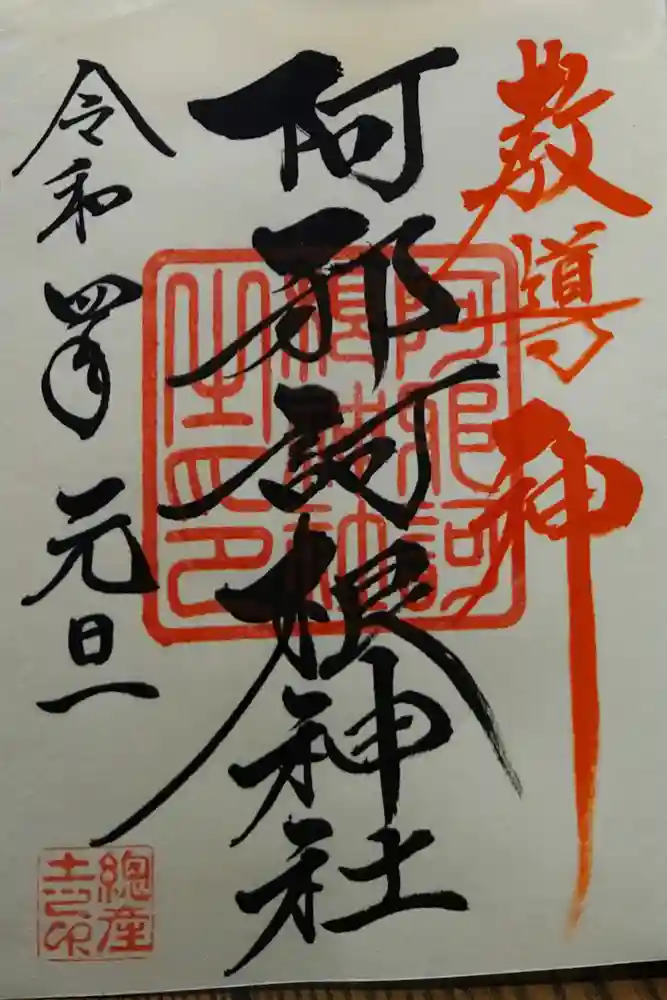 教導神
阿邪訶根神社
令和四年元旦
阿邪訶
根神社
之印
總産
土印